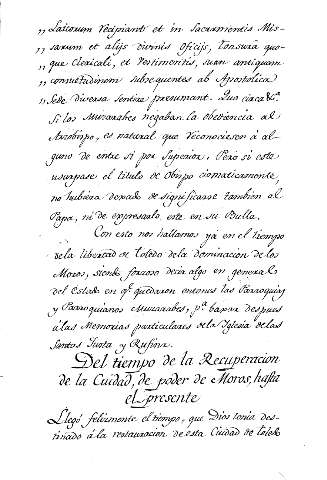 „ Laicorum recipiant et in Sacramentis Mis-
„ sarum et alijs divinis oficijs, tonsura quo-
„ que Clericali, et Vestimentis, suam antiquam
„ consuetudinem subsequentes ab Apostolica
„ Sede diversa sentire presumant. Qua circa &a
Si los Muzarabes negaban la obediencia al
Arzobispo, es natural que reconociesen à al-
guno de entre si por Superior. Pero si este
usurpase el titulo de Obispo cismaticamente,
no hubiera dexado de significarse tambien al
Papa, ni de expresarlo este en su Bulla.
Con esto nos hallamos ya en el tiempo
de la libertad de Toledo de la dominacion de los
Moros, siendo forzoso decir algo en general
del Estado en qe quedaron entonces las Parroquias
y Parroquianos Muzarabes, pa baxar despues
à las Memorias particulares de la Iglesia de las
Santas Justa y Rufina.
Del tiempo de la Recuperacion
de la Cuidad, de poder de Moros, hasta
el Presente
Llegó felizmente el tiempo, que Dios tenia des-
tinado à la restauracion de esta Ciudad de Toledo